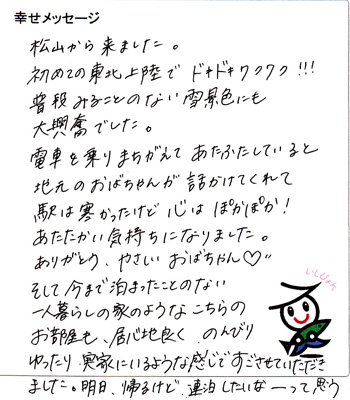 幸せメッセージ
松山から来ました。
初めての東北上陸で ドキドキワクワク!!!
普段みることのない雪景色にも
大興奮でした。
電車を乗りまちがえて あたふたしていると
地元のおばちゃんが 話かけてくれて
駅は寒かったけど 心は ぽかぽか!
あたたかい気持ちになりました。
ありがとう、やさしい おばちゃん♡"
そして今まで泊まったことのない
一人暮らしの家のような こちらの
お部屋も、居心地良く、のんびり
ゆったり 実家にいるような感じですごさせていただき
ました。明日、帰るけど、連泊したいなーって思う